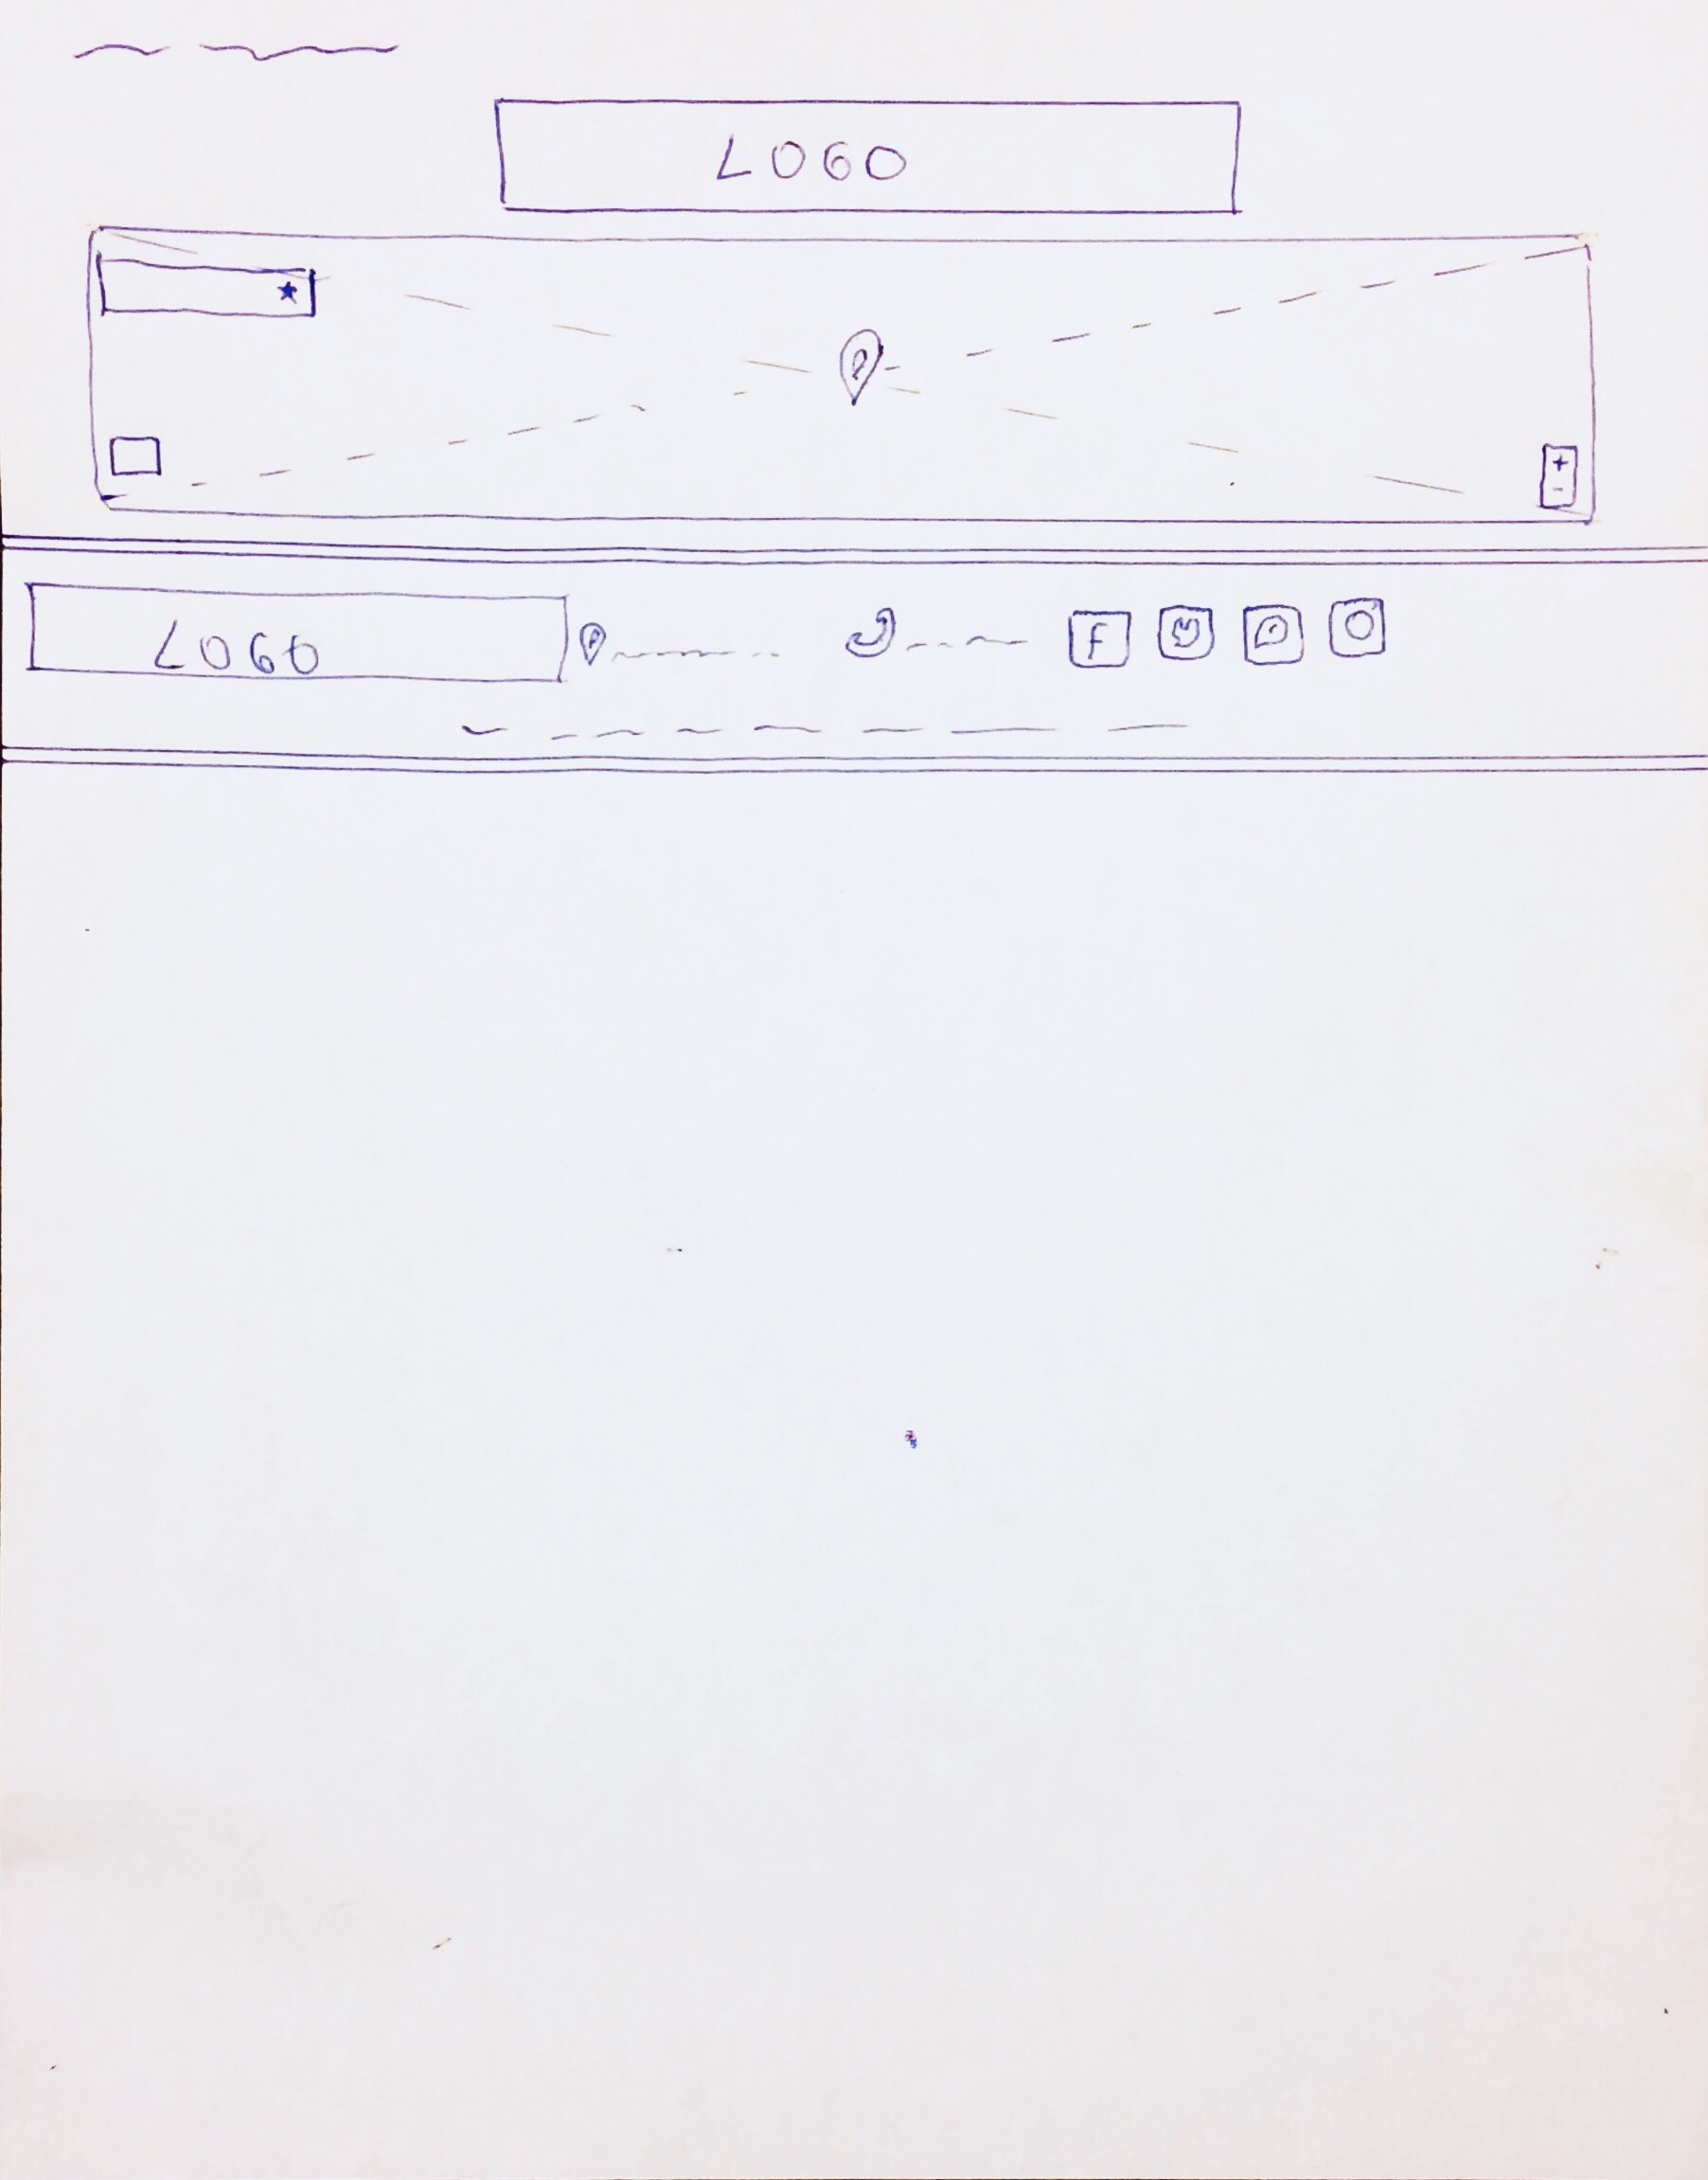 LOGO
+
-
LOGO
f